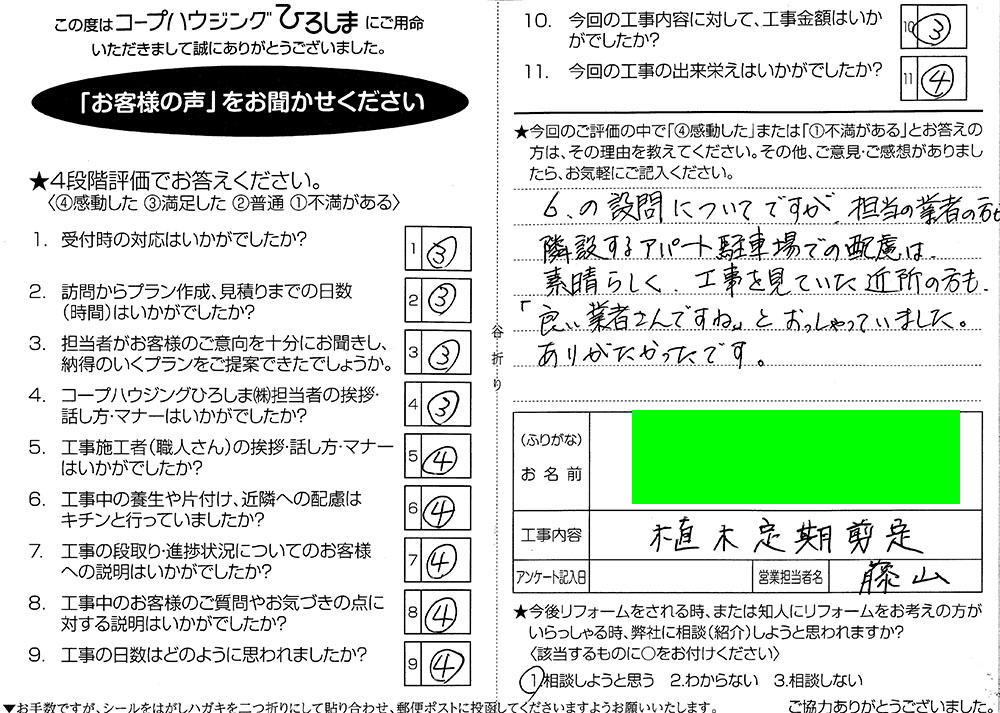 この度はコープハウジングひろしまにご用命
いただきまして誠にありがとうございました。
「お客様の声」をお聞かせください
★4段階評価でお答えください。
〈④感動した ③満足した ②普通 ①不満がある〉
1. 受付時の対応はいかがでしたか?
1 ③
2. 訪問からプラン作成、見積りまでの日数
(時間)はいかがでしたか?
2 ③
3. 担当者がお客様のご意向を十分にお聞きし、
納得のいくプランをご提案できたでしょうか。
3 ③
4. コープハウジングひろしま㈱担当者の挨拶・
話し方・マナーはいかがでしたか?
4 ③
5. 工事施工者(職人さん)の挨拶・話し方・マナー
はいかがでしたか?
5 ④
6. 工事中の養生や片付け、近隣への配慮は
キチンと行っていましたか?
6 ④
7. 工事の段取り・進捗状況についてのお客様
への説明はいかがでしたか?
7 ④
8. 工事中のお客様のご質問やお気づきの点に
対する説明はいかがでしたか?
8 ④
9. 工事の日数はどのように思われましたか?
9 ④
▼お手数ですが、シールをはがしハガキを二つ折りにして貼り合わせ、郵便ポストに投函してくださいますようお願いいたします。
谷折り
10. 今回の工事内容に対して、工事金額はいか
がでしたか?
10 ③
11. 今回の工事の出来栄えはいかがでしたか?
11 ④
★今回のご評価の中で「④感動した」または「①不満がある」とお答えの
方は、その理由を教えてください。その他、ご意見・ご感想がありまし
たら、お気軽にご記入ください。
6、の設問についてですが、担当の業者の方の
隣設するアパート駐車場での配慮は、
素晴らしく、工事を見ていた近所の方も、
「良い業者さんですね」とおっしゃっていました。
ありがたかったです。
(ふりがな)
お名前
工事内容 植木定期剪定
アンケート記入日 営業担当者名 藤山
★今後リフォームをされる時、または知人にリフォームをお考えの方が
いらっしゃる時、弊社に相談(紹介)しようと思われますか?
〈該当するものに○をお付けください〉
①相談しようと思う 2.わからない 3.相談しない
ご協力ありがとうございました。